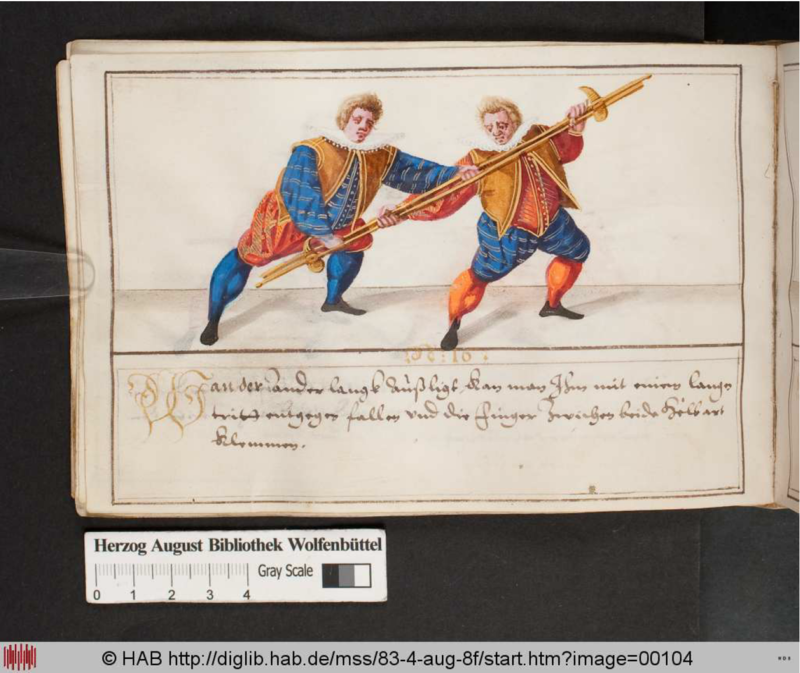 N: 16.
Wan der ander langk außligt kan man Ihm mit einem langen
tritt entgegen fallen und die finger Zwischen beide Helbart
Klemmen.
Herzog August Bibliothek Wolfenbüttel
Gray Scale
0 1 2 3 4
© HAB http://diglib.hab.de/mss/83-4-aug-8f/start.htm?image=00104